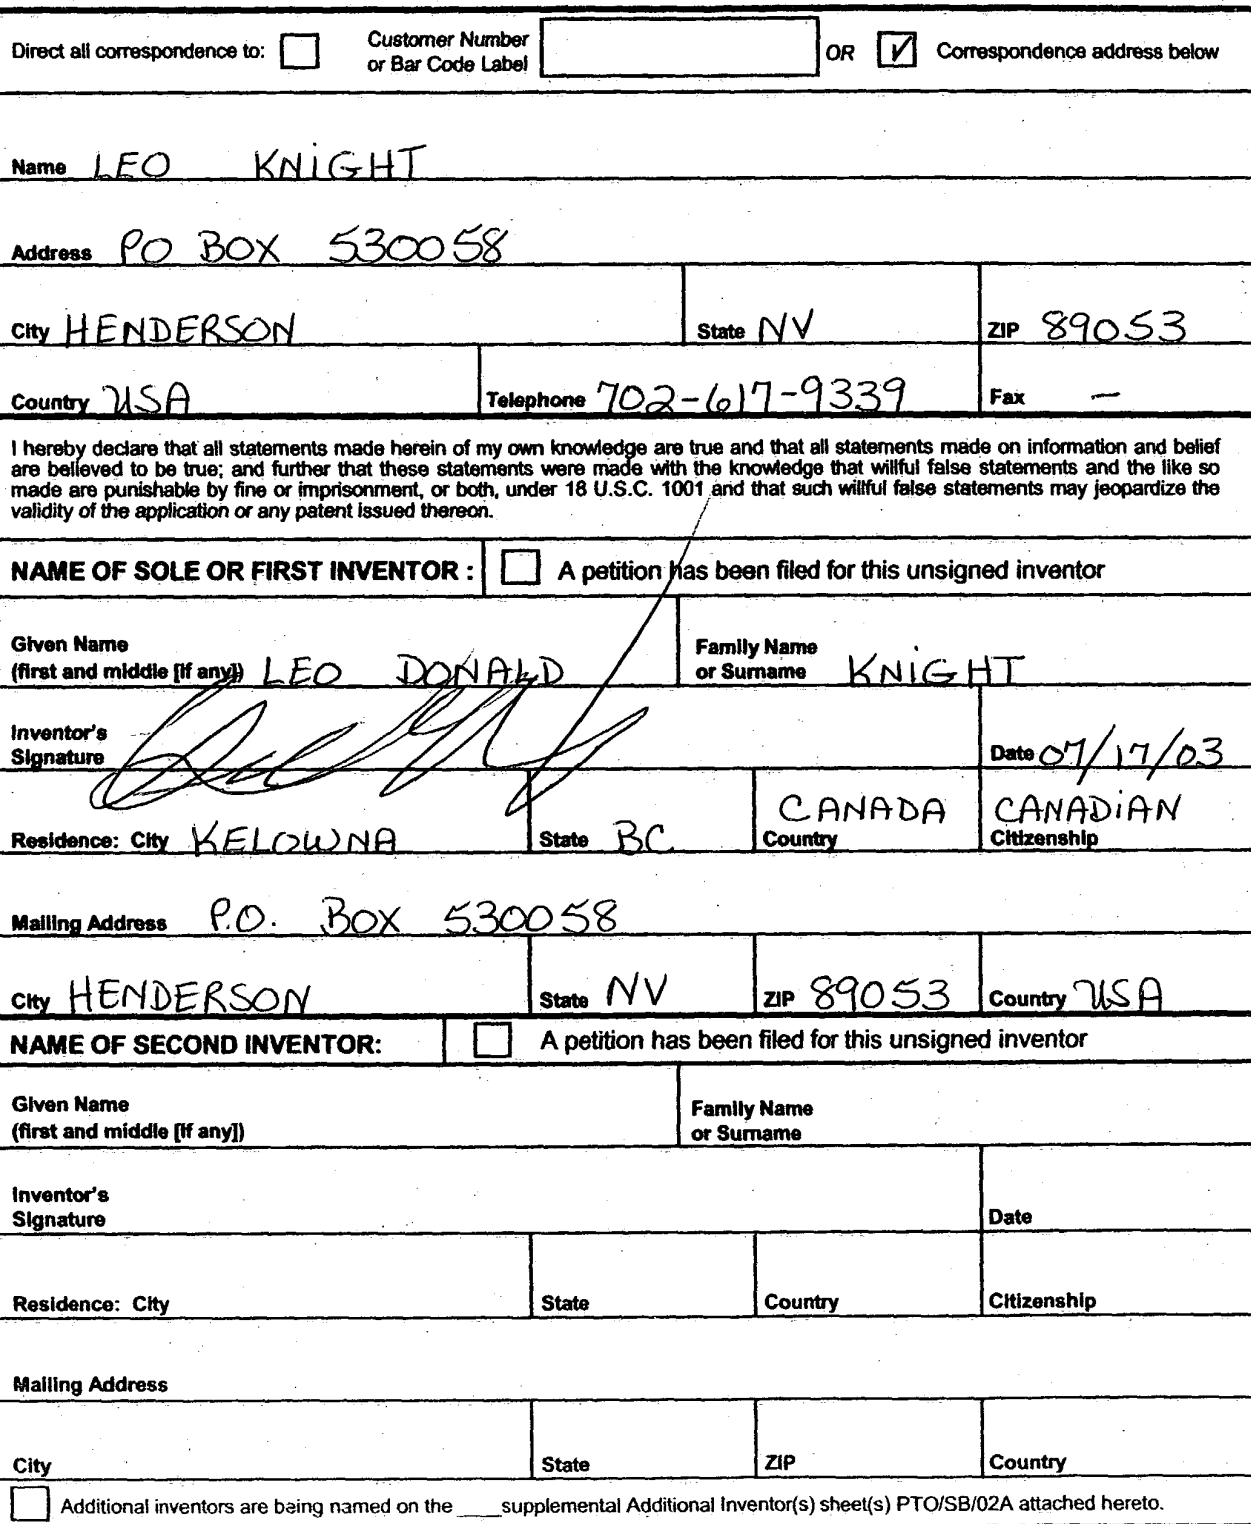 Direct all correspondence to: Customer Number or Bar Code Label OR Correspondence address below
Name LEO KNiGHT
Address PO BOX 530058
City HENDERSON State NV ZIP 89053
Country USA Telephone 702-617-9339 Fax —
I hereby declare that all statements made herein of my own knowledge are true and that all statements made on information and belief
are believed to be true; and further that these statements were made with the knowledge that willful false statements and the like so
made are punishable by fine or imprisonment, or both, under 18 U.S.C. 1001 and that such willful false statements may jeopardize the
validity of the application or any patent issued thereon.
NAME OF SOLE OR FIRST INVENTOR : A petition has been filed for this unsigned inventor
Given Name
(first and middle [if any]) LEO DONALD
Family Name
or Surname KNiGHT
Inventor's
Signature
Date 07/17/03
Residence: City KELOWNA State BC CANADA Country CANADiAN Citizenship
Mailing Address P.O. BOX 530058
City HENDERSON State NV ZIP 89053 Country USA
NAME OF SECOND INVENTOR: A petition has been filed for this unsigned inventor
Given Name
(first and middle [if any])
Family Name
or Surname
Inventor's
Signature
Date
Residence: City State Country Citizenship
Mailing Address
City State ZIP Country
Additional inventors are being named on the ___ supplemental Additional Inventor(s) sheet(s) PTO/SB/02A attached hereto.